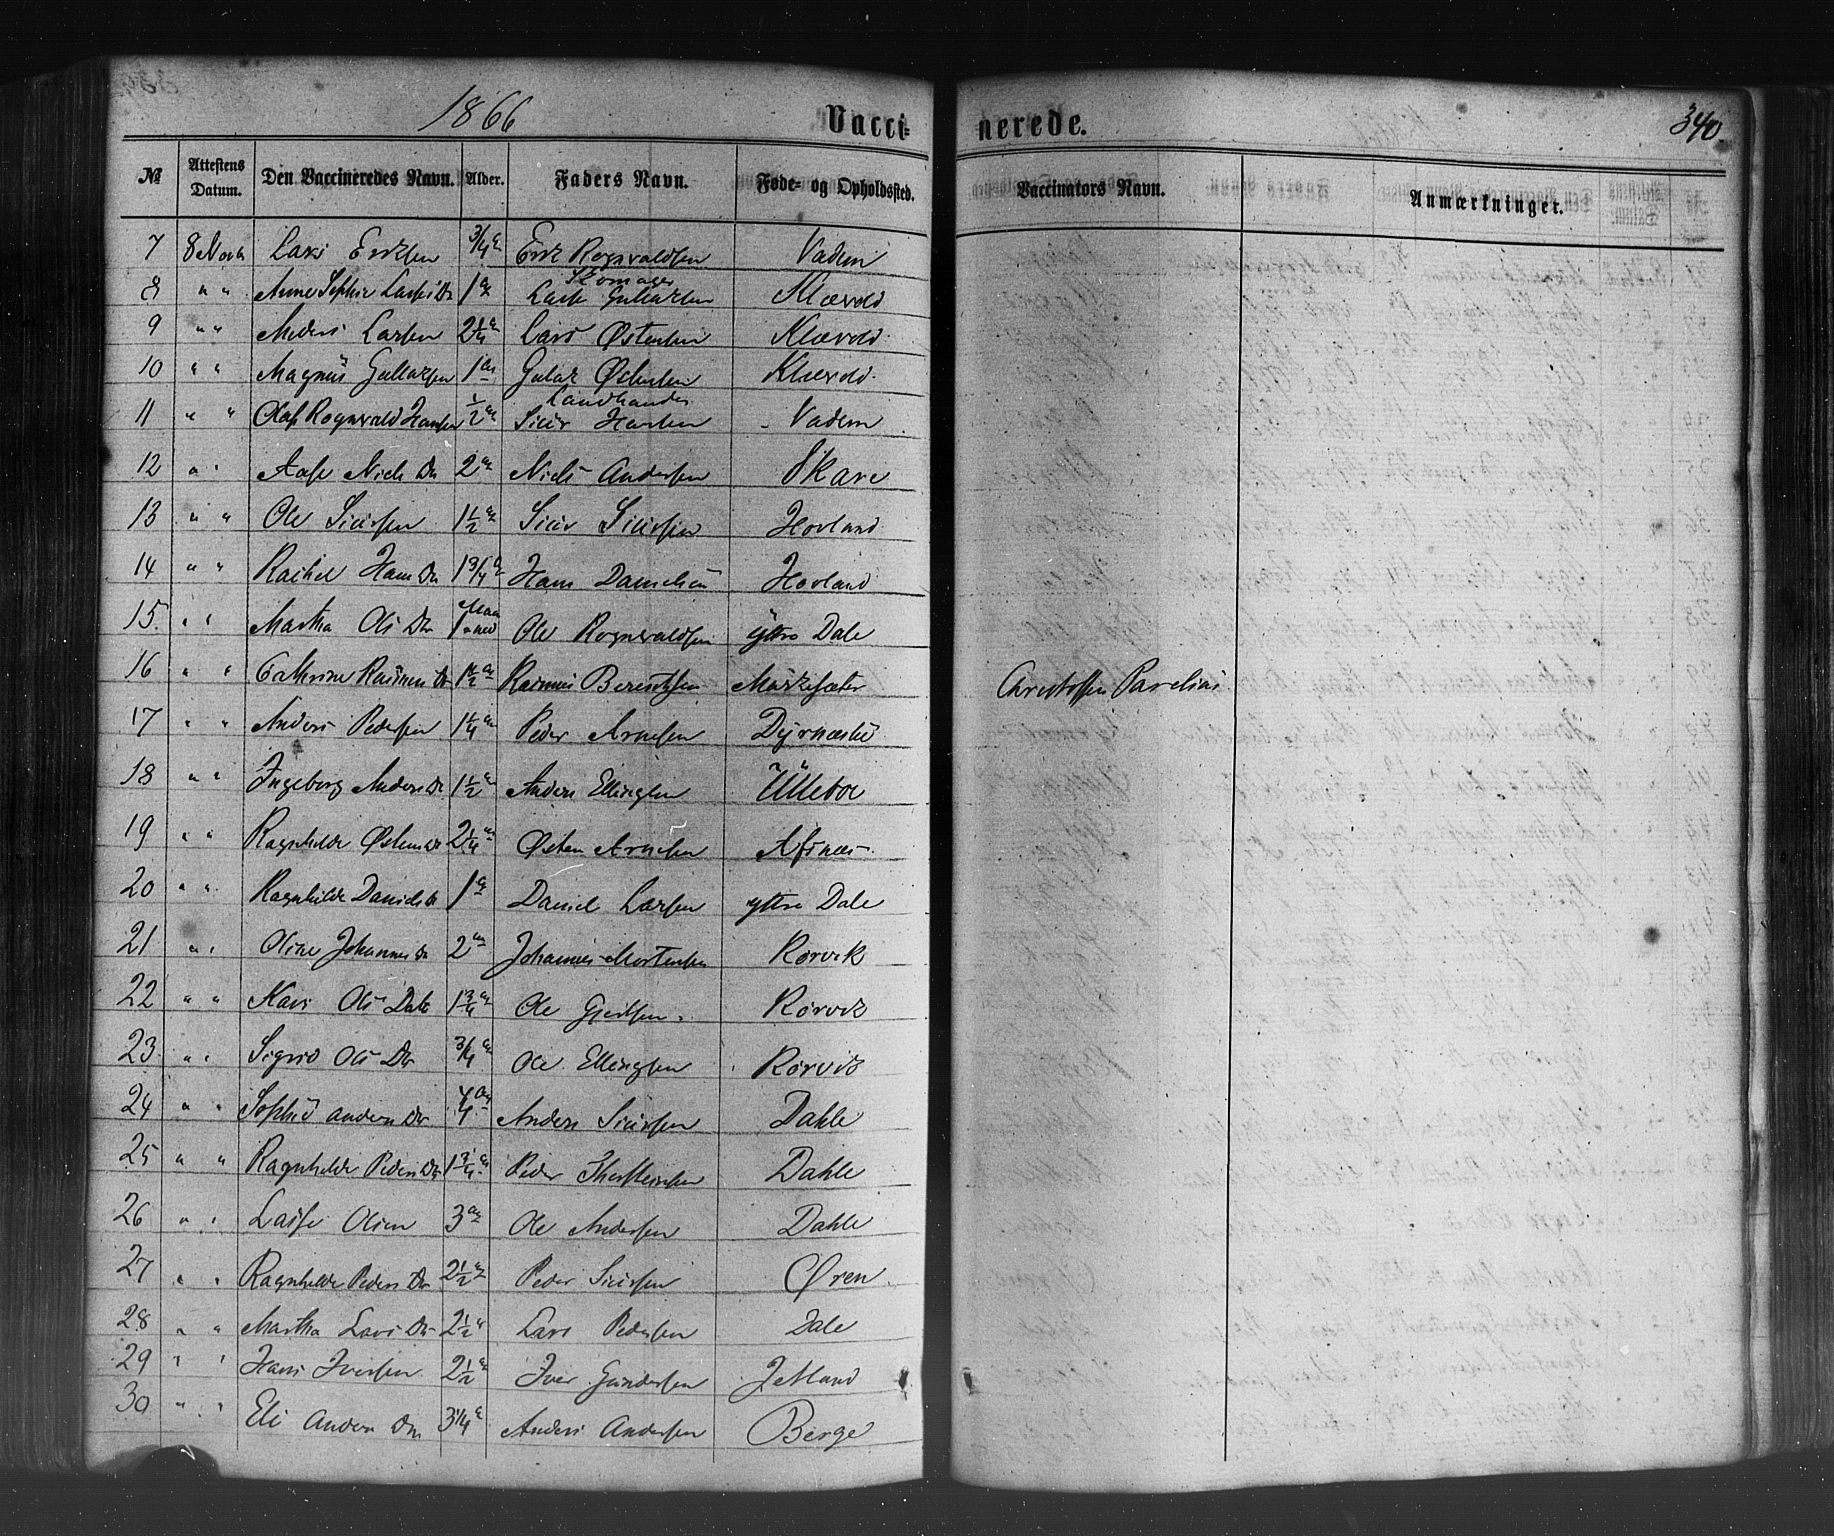 1866 Vacci= nerede. 340
№ Attestens Datum. Den Vaccineredes Navn. Alder. Faders Navn. Føde- og Opholdssted. Vaccinators Navn. Anmærkninger.
7 8 Novb Lars Erichsen 3/4 Erik Rognvaldsen Vadem
8 " " Anne Sophie Lasses Dr 1 Skomager Lasse Gullaksen Klævold
9 " " Anders Larsen 2 1/4 Lars Østensen Klævold
10 " " Magnus Gullaksen 1 Gulak Østensen Klævold
11 " " Olaf Rognvald Hansen 1/2 Landhandler Siur Hansen Vadem
12 " " Aase Niels Dr 2 Niels Andersen Skare
13 " " Ole Siursen 1 1/2 Siur Siursen Hovland
14 " " Rachel Hans Dr 1 3/4 Hans Danielsen Hovland
15. " " Martha Ols Dtr 1 Maaned Ole Rognvaldsen yttre Dale
16 " " Cathrine Rasmus Dr 1 1/2 Rasmus Berentsen Mørkesæter
17 " " Anders Pedersen 1 1/4 Peder Arnesen Dyrnæsli
18 " " Ingeborg Anders Dr 1 1/2 Anders Ellingsen Ulleboe
19 " " Ragnhilde Østens Dr 2 1/4 Østen Arnesen Afsnæs
20 " " Ragnhilde Daniels Dr 1 Daniel Larsen yttre Dale
21 " " Oline Johannes Dr 2 Johannes Mortensen Rørvik
22 " " Kari Ols Datr 1 3/4 Ole Gjertsen Rørvik
23 " " Sigrid Ols Dr 3/4 Ole Ellingsen Rørvik
24 " " Sophie Anders Dr Anders Siursen Dahle
25 " " Ragnhilde Peders Dr 1 3/4 Peder Thorsteinsen Dahle
26 " " Lasse Olsen 3 Ole Andersen Dahle
27 " " Ragnhilde Peders Dr 2 1/2 Peder Siursen Øren
28 " " Martha Lars Dr 2 1/2 Lars Pedersen Dale
29 " " Hans Iversen 2 1/2 Iver Gundersen Jetland
30 " " Eli Anders Dr 3 1/4 Anders Andersen Berge
Christoffen Parelius